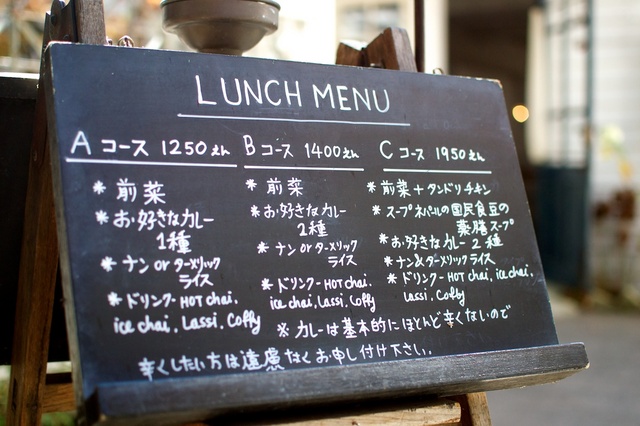 LUNCH MENU
A コース 1250えん
* 前菜
* お好きなカレー
1種
* ナン or ターメリック
ライス
* ドリンク-HOT chai,
ice chai, Lassi, Coffy
B コース 1400えん
* 前菜
* お好きなカレー
2種
* ナン or ターメリック
ライス
* ドリンク-HOT chai,
ice chai, Lassi, Coffy
C コース 1950えん
* 前菜+タンドリチキン
* スープネパールの国民食豆の
薬膳スープ
* お好きなカレー 2種
* ナン&ターメリックライス
* ドリンク-HOT chai, ice chai,
Lassi, Coffy
※ カレーは基本的にほとんど辛くないので
辛くしたい方は遠慮なくお申し付け下さい.